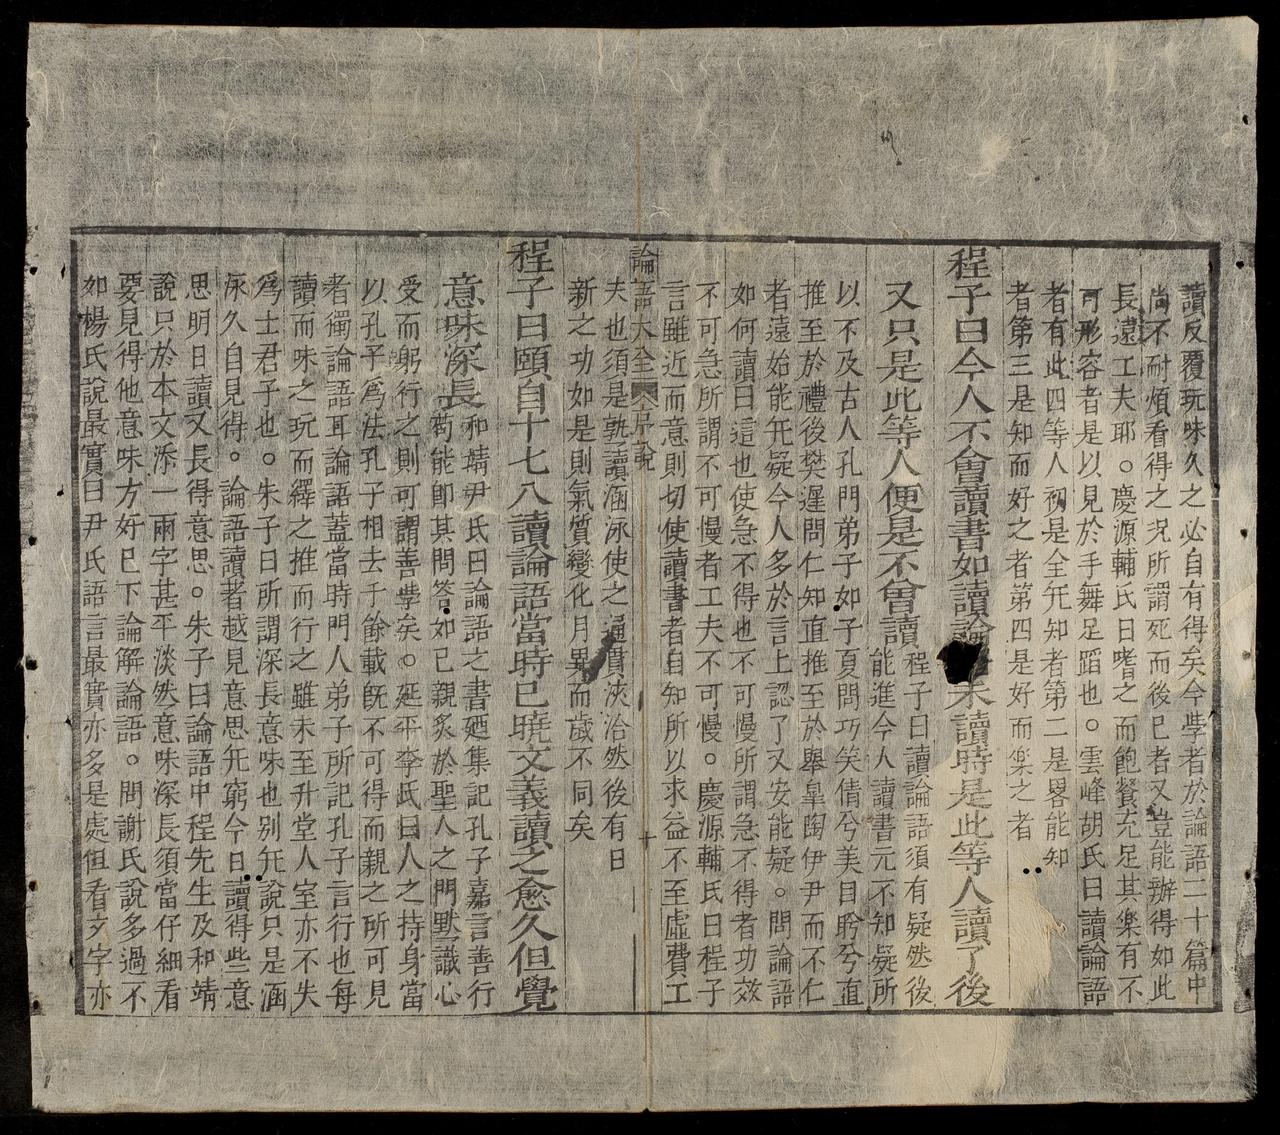 讀反覆玩味久之必自有得矣今學者於論語二十篇中
尚不耐煩看得之况所謂死而後已者又豈能辦得如此
長遠工夫耶。慶源輔氏曰嗜之而飽餐充足其樂有不
可形容者是以見於手舞足蹈也。雲峰胡氏曰讀論語
者有此四等人初是全旡知者第二是畧能知
者第三是知而好之者第四是好而樂之者
程子曰今人不會讀書如讀論 未讀時是此等人讀了後
又只是此等人便是不曾讀
程子曰讀論語須有疑然後
能進今人讀書元不知疑所
以不及古人孔門弟子如子夏問巧笑倩兮美目盻兮直
推至於禮後樊遲問仁知直推至於舉皐陶伊尹而不仁
者遠始能旡疑今人多於言上認了又安能疑。問論語
如何讀曰這也使急不得也不可慢所謂急不得者功效
不可急所謂不可慢者工夫不可慢。慶源輔氏曰程子
言雖近而意則切使讀書者自知所以求益不至虛費工
論語大全 序說 十
夫也須是孰讀涵泳使之通貫浹洽然後有日
新之功如是則氣質變化月異而歲不同矣
程子曰頤自十七八讀論語當時已曉文義讀之愈久但覺
意味深長
和靖尹氏曰論語之書廼集記孔子嘉言善行
苟能卽其問答如己親炙於聖人之門默識心
受而躬行之則可謂善學矣。延平李氏曰人之持身當
以孔子爲法孔子相去千餘載旣不可得而親之所可見
者獨論語耳論語蓋當時門人弟子所記孔子言行也每
讀而味之玩而繹之推而行之雖未至升堂入室亦不失
爲士君子也。朱子曰所謂深長意味也別旡說只是涵
泳久自見得。論語讀著越見意思旡窮今日讀得些意
思明日讀又長得意思。朱子曰論語中程先生及和靖
說只於本文添一兩字甚平淡然意味深長須當仔細看
要見得他意味方好巳下論解論語。問謝氏說多過不
如楊氏說最實曰尹氏語言最實亦多是處但看文字亦